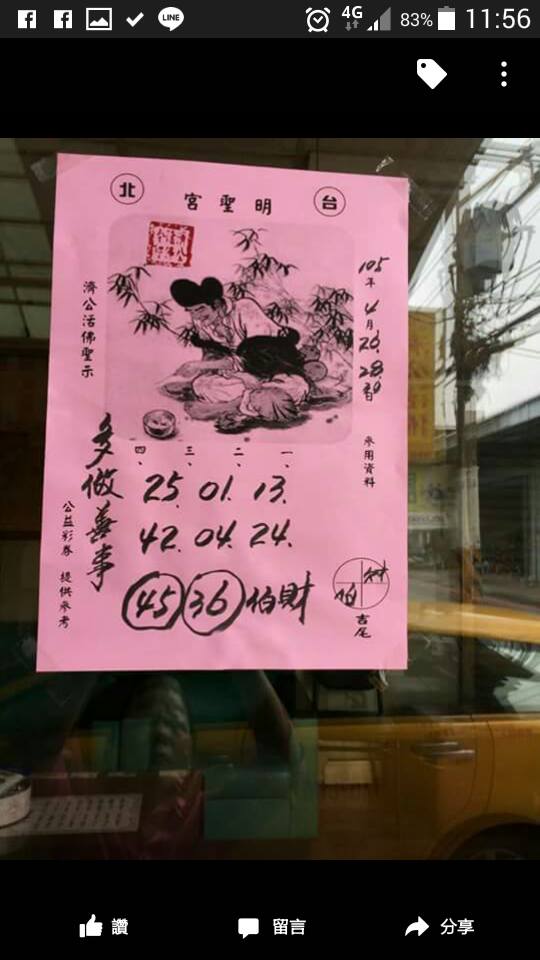 LINE 4G 83% 11:56
北 明聖宮 台
濟公活佛聖示
105年4月26.28
參用資料
多做善事
一、二、三、四、
25. 01. 13.
42. 04. 24.
45 36 伯財
財 伯
吉尾
公益彩券 提供參考
讚 留言 分享